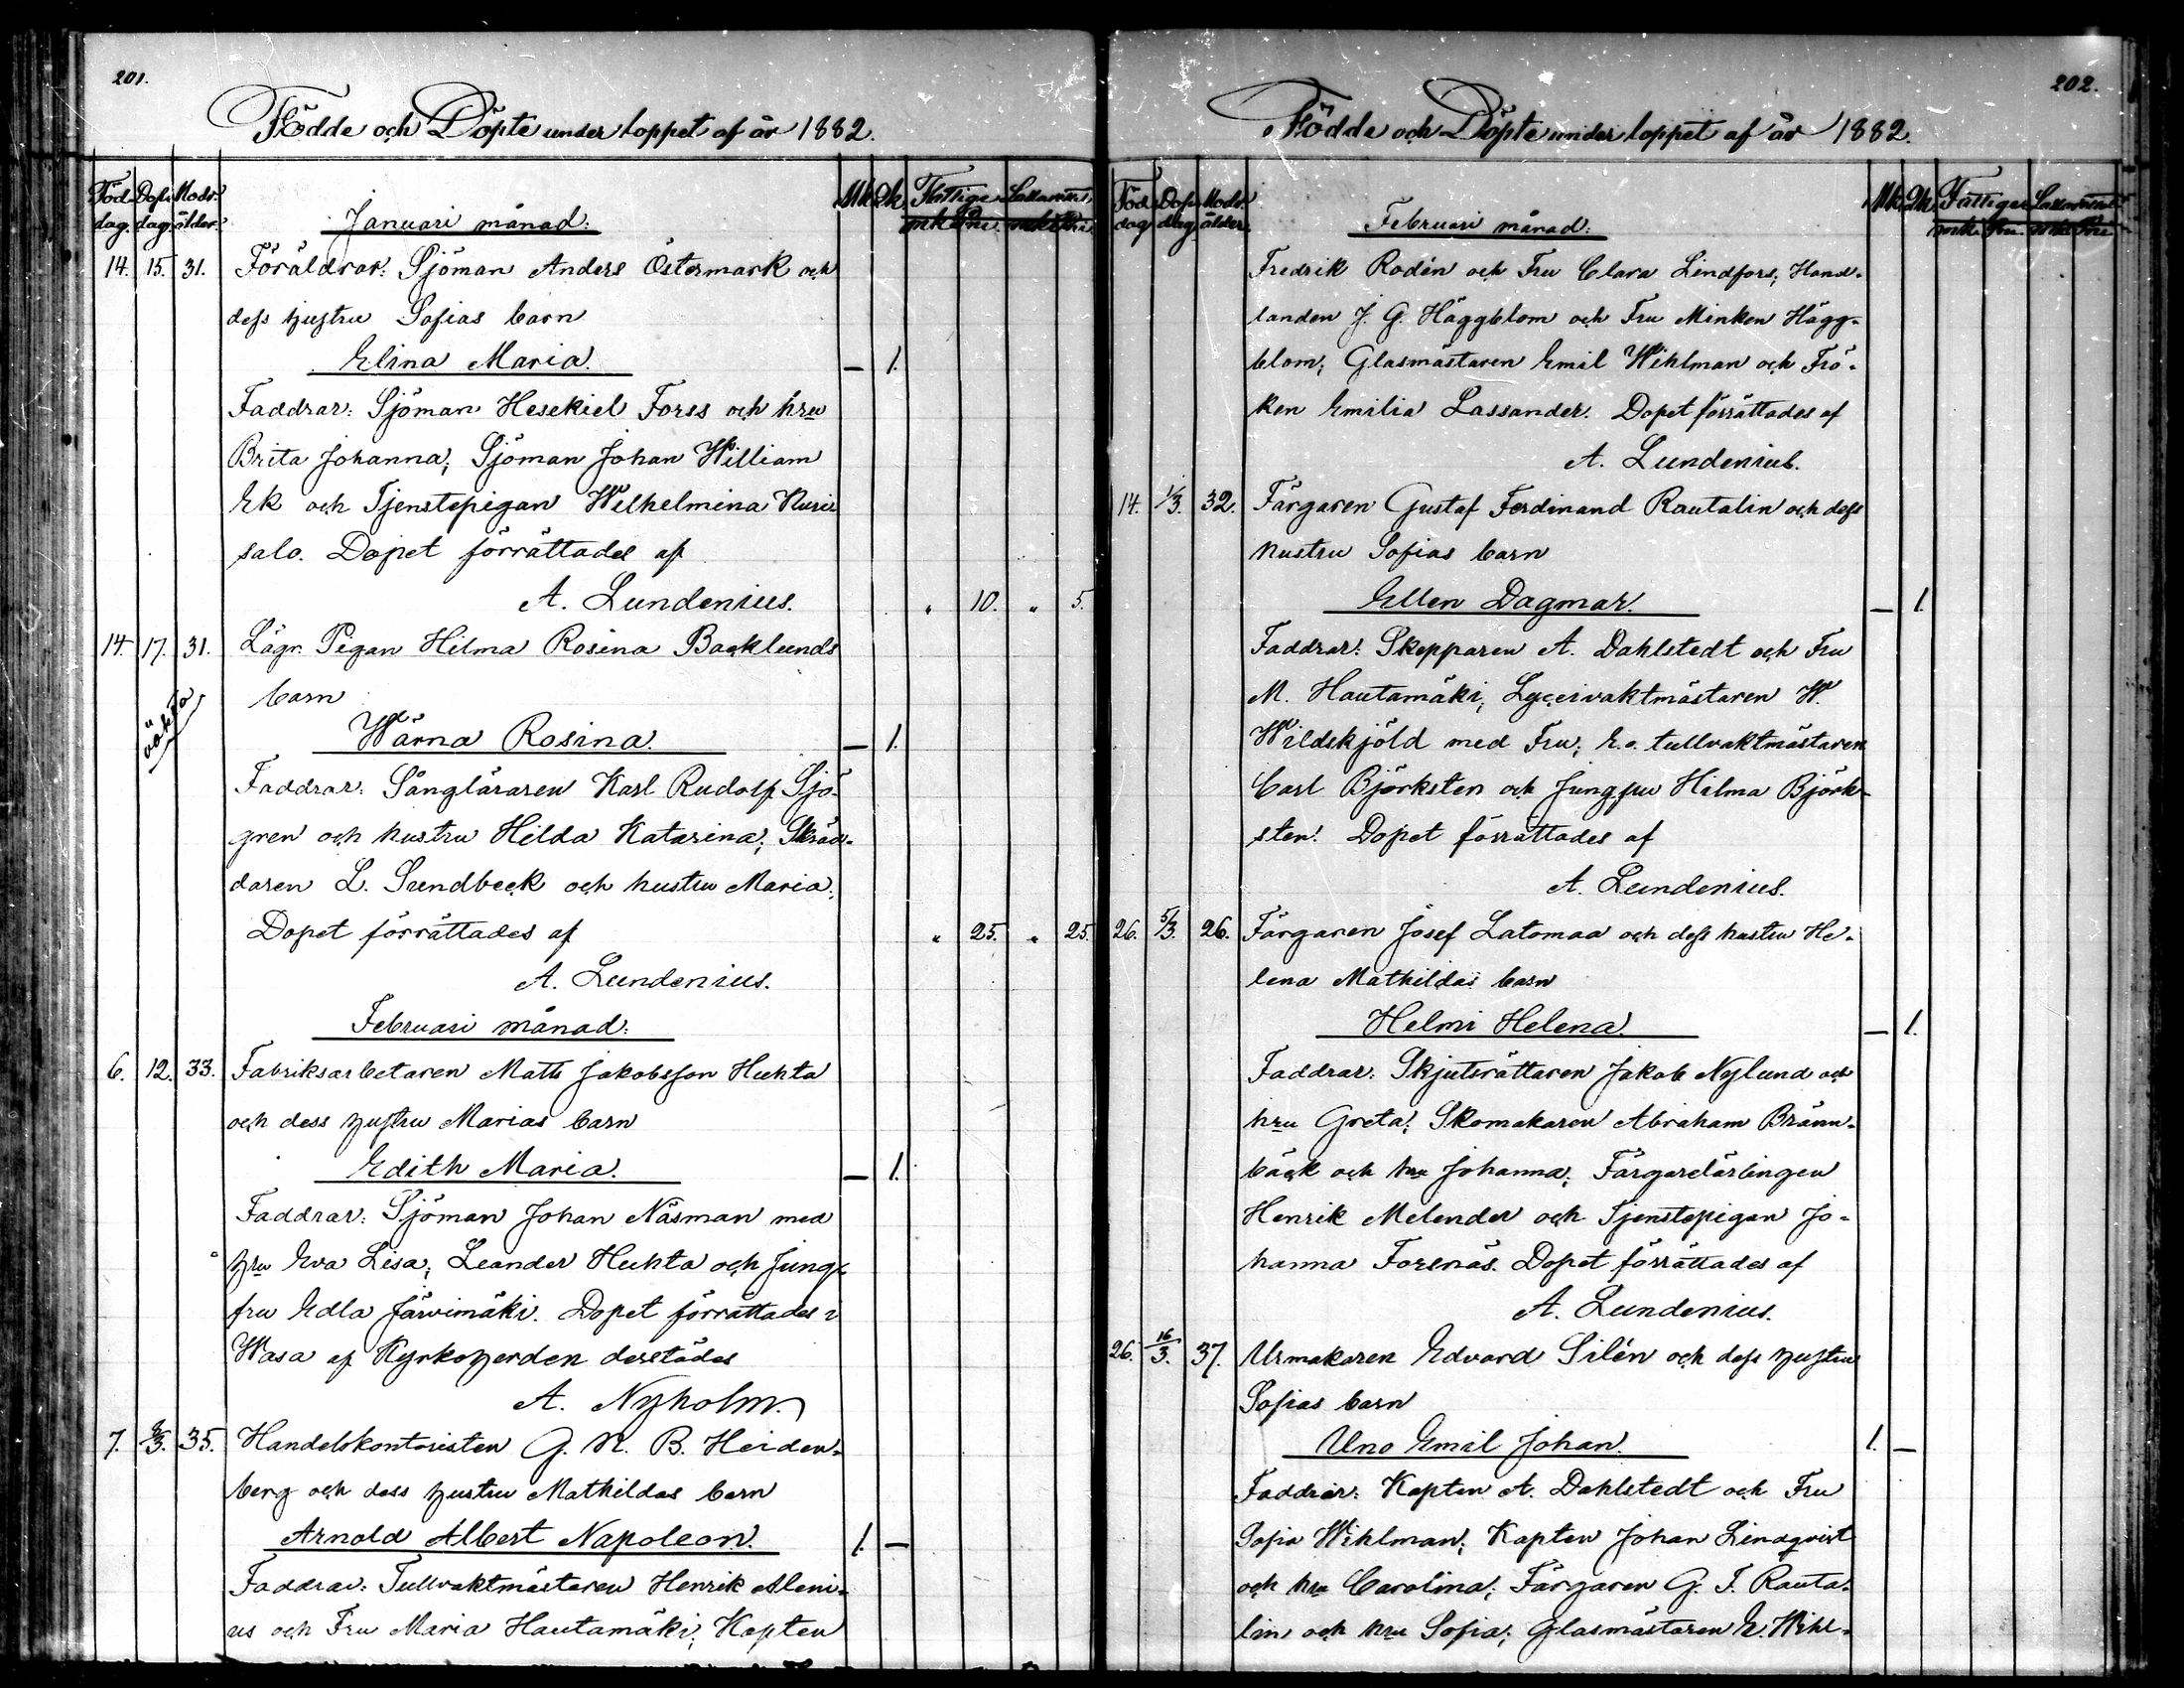 201.
Födde och Döpte under loppet af år 1882.
Föd. dag. Dop. dag. Modr. ålder. Mk. Qk. Fattiga mk. Pni. mk. Pni.
Januari månad:
14. 15. 31. Föräldrar: Sjöman Anders Östermark och
dess hustru Sofias barn
Elina Maria. — 1.
Faddrar: Sjöman Hesekiel Forss och hru
Brita Johanna; Sjöman Johan William
Ek och Tjenstepigan Wilhelmina Kuri
salo. Dopet förrättades af
A. Lundenius. " 10. " 5.
14. 17. 31. Lägr. Pigan Hilma Rosina Backlunds
barn
oäkta
Wärna Rosina. — 1.
Faddrar: Sångläraren Karl Rudolf Sjö-
gren och hustru Hilda Katarina; Skräd-
daren L. Sundbeck och hustru Maria.
Dopet förrättades af " 25. " 25.
A. Lundenius.
Februari månad:
6. 12. 33. Fabriksarbetaren Matts Jakobsson Huhta
och dess hustru Marias barn
Edith Maria. — 1.
Faddrar: Sjöman Johan Näsman med
hru Eva Lisa; Leander Huhta och Jung-
fru Edla Järvimäki. Dopet förrättades i
Wasa af Kyrkoherden derstädes
A. Nyholm.
7. 8/3. 35. Handelskontoristen G. N. B. Heiden-
berg och dess hustru Mathildas barn
Arnold Albert Napoleon. 1. —
Faddrar: Tullvaktmästaren Henrik Aleni-
us och Fru Maria Hautamäki; Kapten
202.
Födde och Döpte under loppet af år 1882.
Föd. dag Dop. dag. Modr. ålder. Mk. Qk. Fattiga mk. Pni. mk. Pni
Februari månad:
Fredrik Rodén och Fru Clara Lindfors; Hand-
landen J. G. Häggblom och Fru Minken Hägg-
blom; Glasmästaren Emil Wihlman och Frö-
ken Emilia Lassander. Dopet förrättades af
A. Lundenius.
14. 1/3. 32. Färgaren Gustaf Ferdinand Rautalin och dess
hustru Sofias barn
Ellen Dagmar. — 1.
Faddrar: Skepparen A. Dahlstedt och Fru
M. Hautamäki; Lyceivaktmästaren W.
Wildskjöld med Fru; E. o. tullvaktmästaren
Carl Björksten och Jungfru Hilma Björk-
sten. Dopet förrättades af
A. Lundenius.
26. 5/3. 26. Färgaren Josef Latomaa och dess hustru He-
lena Mathildas barn
Helmi Helena. — 1.
Faddrar: Skjutsrättaren Jakob Nylund och
hru Greta; Skomakaren Abraham Bränn-
bäck och hru Johanna; Färgarelärlingen
Henrik Melender och Tjenstepigan Jo-
hanna Forsnäs. Dopet förrättades af
A. Lundenius.
26. 16/3. 37. Urmakaren Edvard Silén och dess hustru
Sofias barn
Uno Emil Johan. 1. —
Faddrar: Kapten A. Dahlstedt och Fru
Sofia Wihlman; Kapten Johan Lindqvist
och hru Carolina; Färgaren G. F. Rauta-
lin och hru Sofia; Glasmästaren E. Wihl-